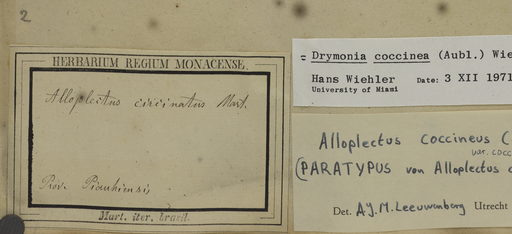 2
HERBARIUM REGIUM MONACENSE.
Alloplectus circinatus Mart.
Prov. Piauhiensi,
Mart. iter. brasil.
= Drymonia coccinea (Aubl.) Wie
Hans Wiehler Date: 3 XII 1971
University of Miami
Alloplectus coccineus (
var. cocc
(PARATYPUS von Alloplectus c
Det. A.J.M. Leeuwenberg Utrecht